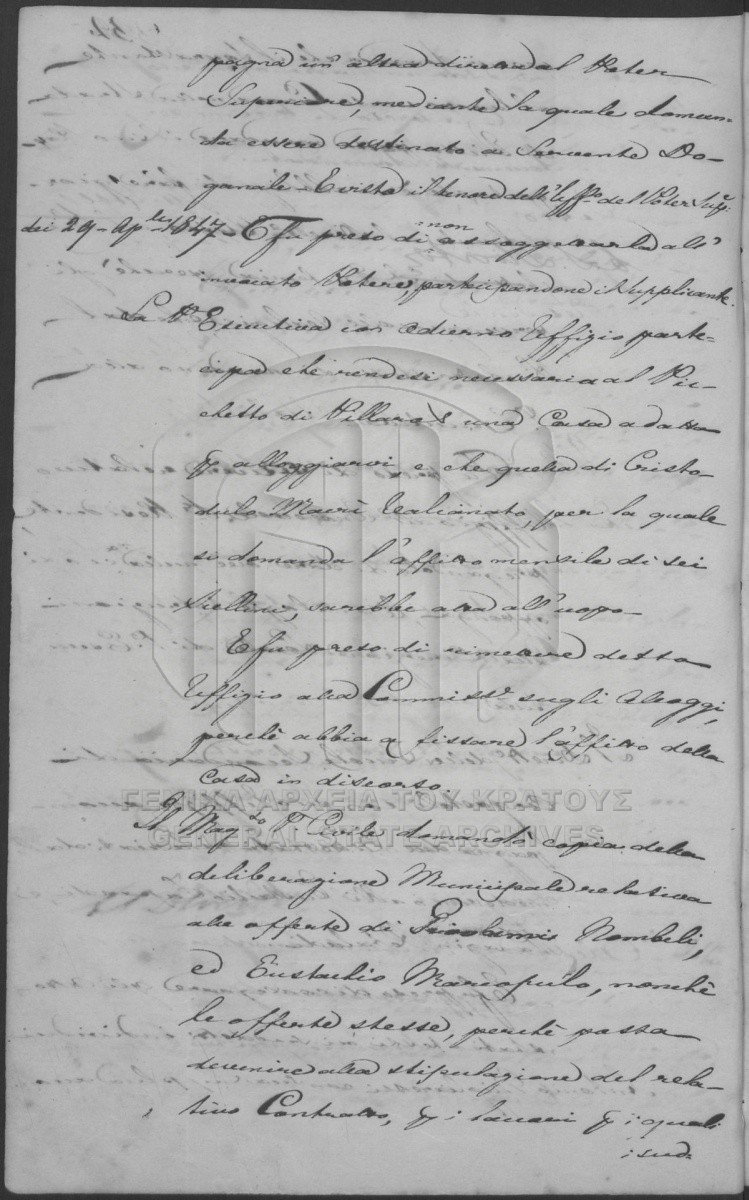 pagna un' altra diretta al Poter
Superiore, mediante la quale doman-
da essere destinato a Servente Do-
ganale. E vista il tenore dell' Uffº del Poter Supr.
dei 29 Aple 1847 - E fu preso di non assoggettarla all'
invocato Potere, participandone il supplicante.
La Pª Esecutiva con odierno Uffizio parte-
cipa che rendesi necessaria al Pic-
chetto di Villara una Casa adatta
p alloggiarvi e che quella di Cristo-
dulo Mavri Valianato, per la quale
si domanda l'affitto mensile di sei
Scellini, sarebbe atta all' uopo
E fu preso di rimettere detto
Uffizio alla Commissª sugli Alloggi,
perchè abbia a fissare l'affitto della
Casa in discorso.
ΓΕΝΙΚΑ ΑΡΧΕΙΑ ΤΟΥ ΚΡΑΤΟΥΣ
GENERAL STATE ARCHIVES
Il Magto Pª Civile domandò copia della
deliberazione Municipale relativa
alle offerte di Nombeli,
ed Eustachio Marcopulo, nonchè
le offerte stesse, perchè possa
devenire alla stipulazione del rela-
tivo Contratto, p i lavori p i quali
i sud: